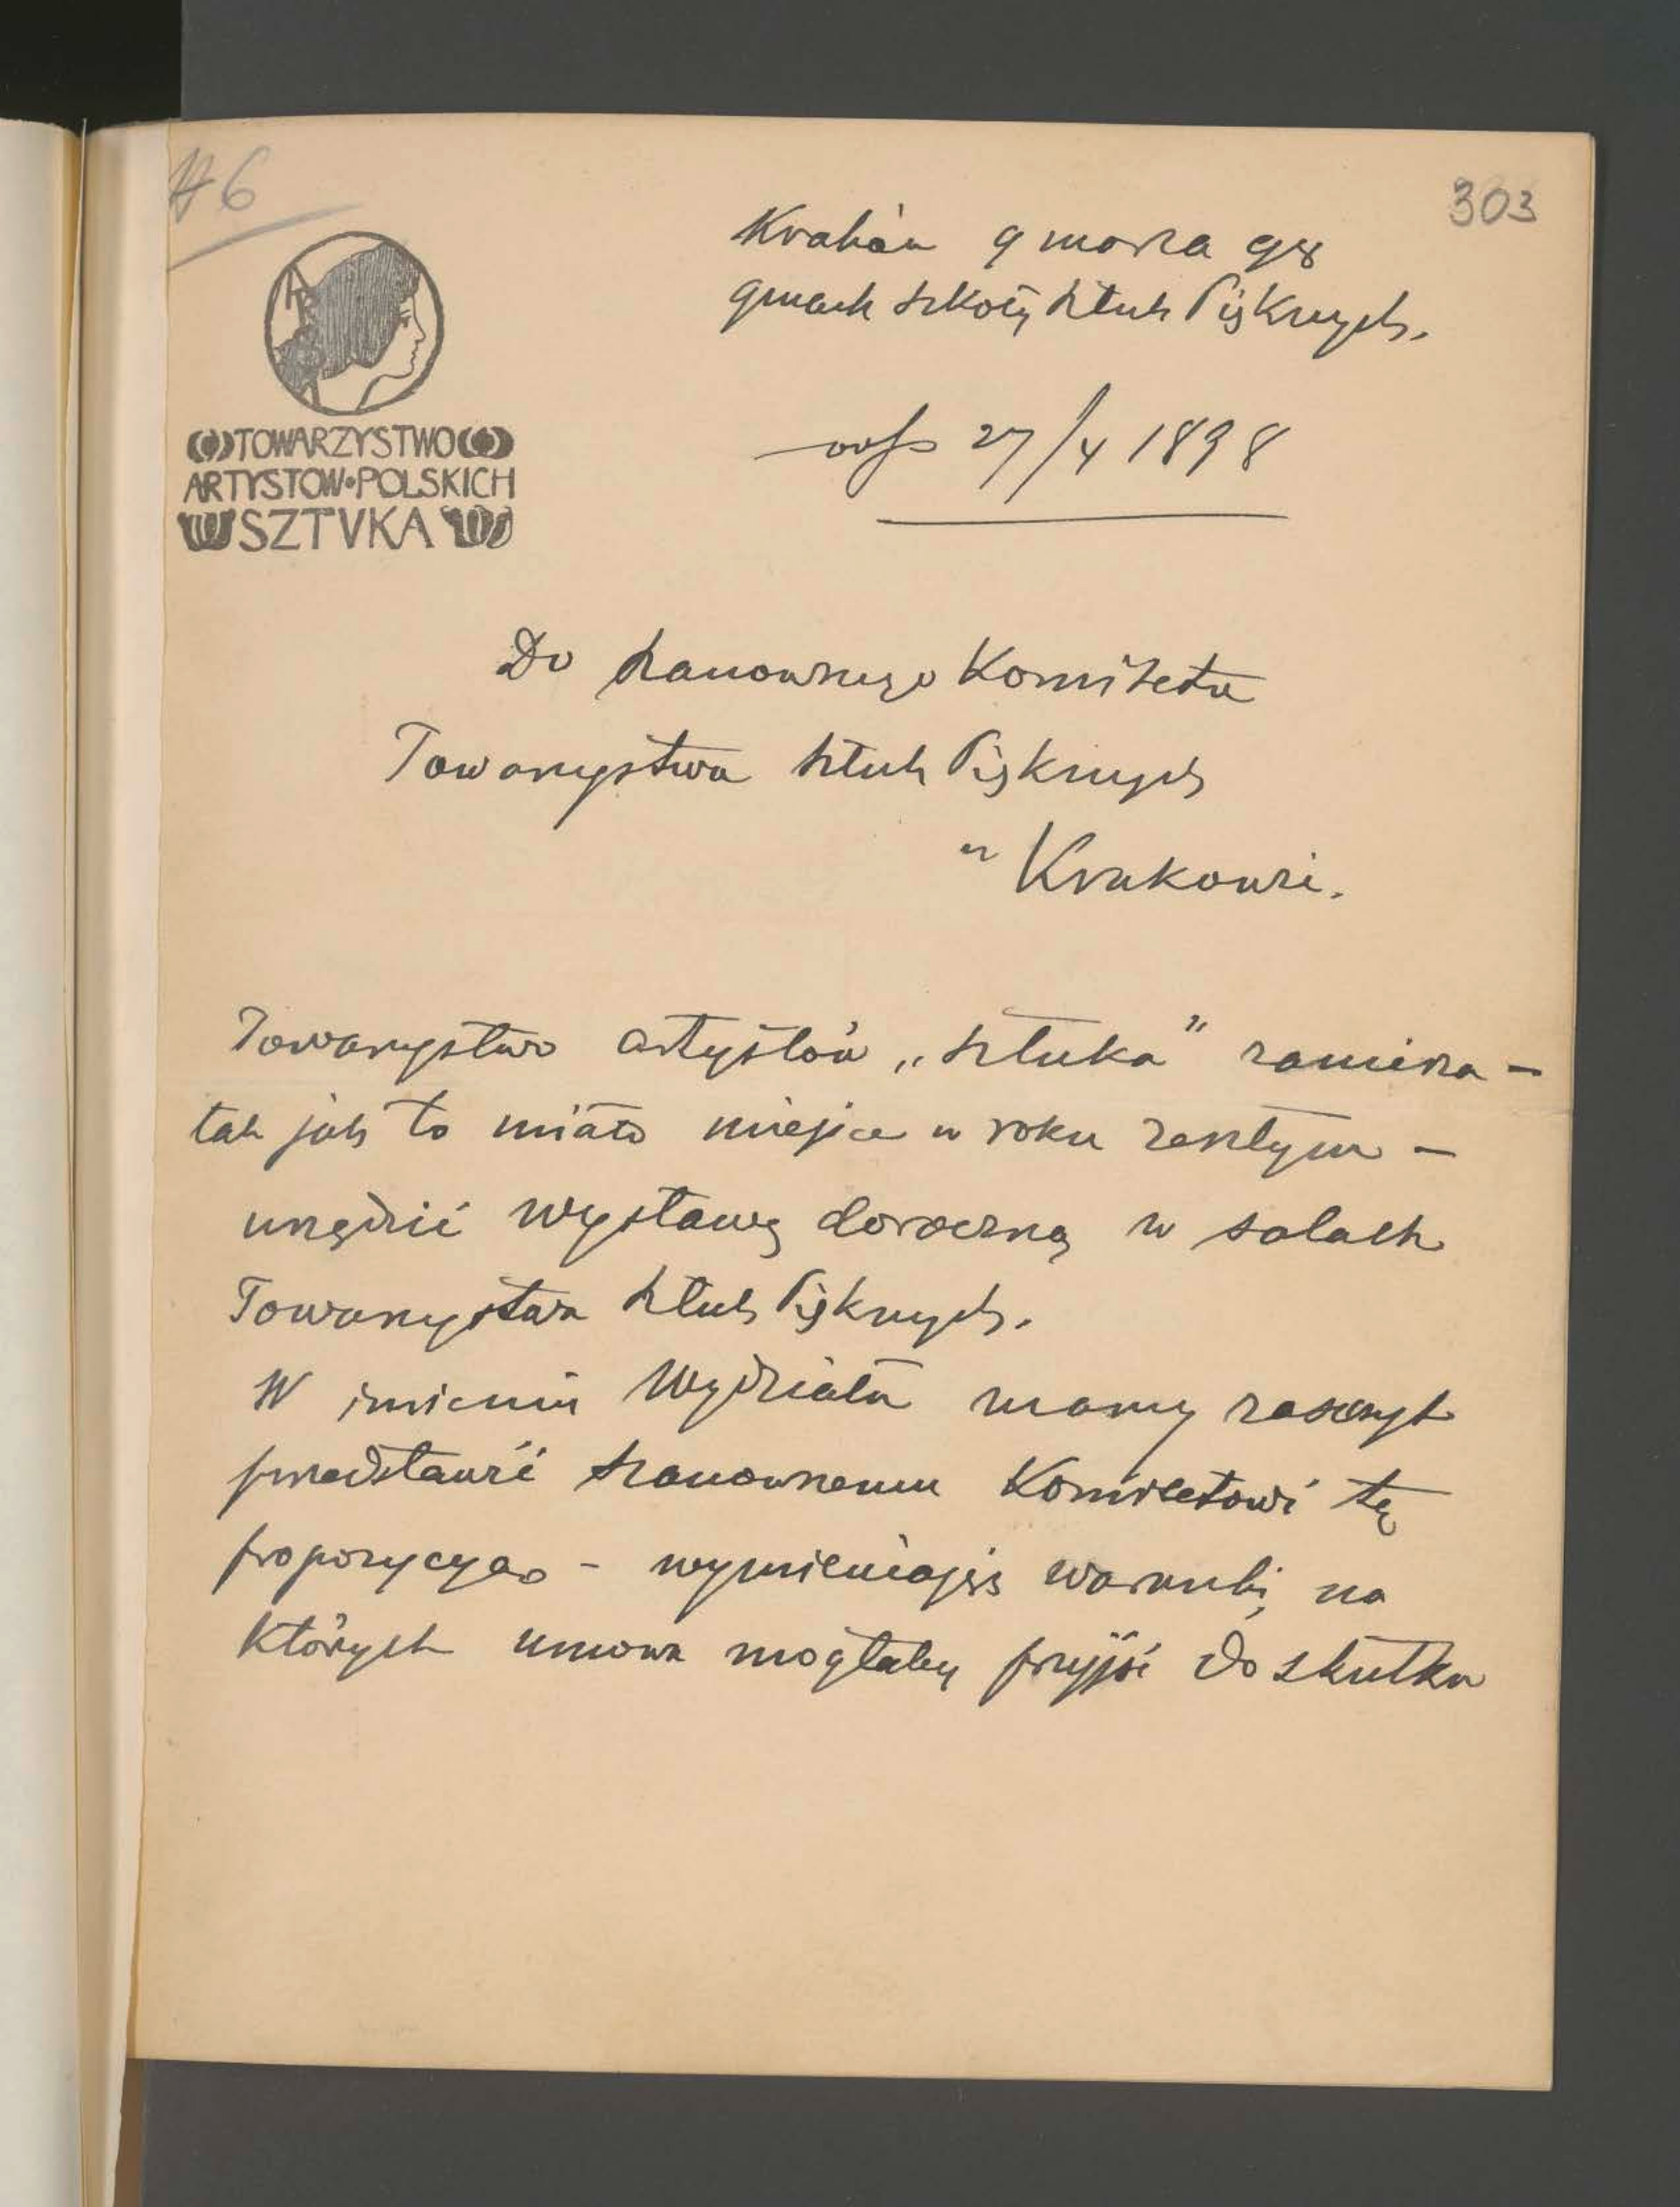 46
303
Kraków 9 marca 98
gmach szkoły sztuk Pięknych.
TOWARZYSTWO
ARTYSTOW•POLSKICH
SZTVKA
27/4 1898
Do szanownego Komitetu
Towarzystwa sztuk Pięknych
w Krakowie.
Towarzystwo artystów „sztuka" zamierza –
tak jak to miało miejsce w roku zeszłym –
urządzić wystawę doroczną w salach
Towarzystwa sztuk Pięknych.
W imieniu Wydziału mamy zaszczyt
przedstawić szanownemu Komitetowi tę
propozycyą – wymieniając warunki, na
których umowa mogłaby przyjść do skutku